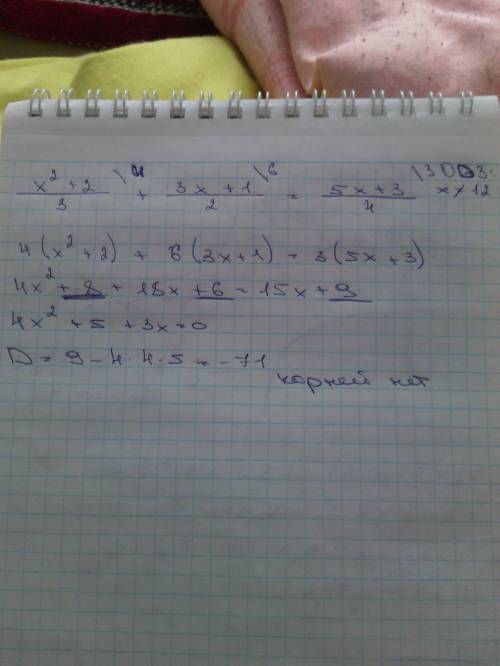 (x² + 2)/3 \4 + (3x + 1)/2 \6 = (5x + 3)/4 \3 ОДЗ: x ≠ 12
4(x² + 2) + 6(3x + 1) = 3(5x + 3)
4x² + 8 + 18x + 6 = 15x + 9
4x² + 5 + 3x = 0
D = 9 - 4·4·5 = -71
корней нет